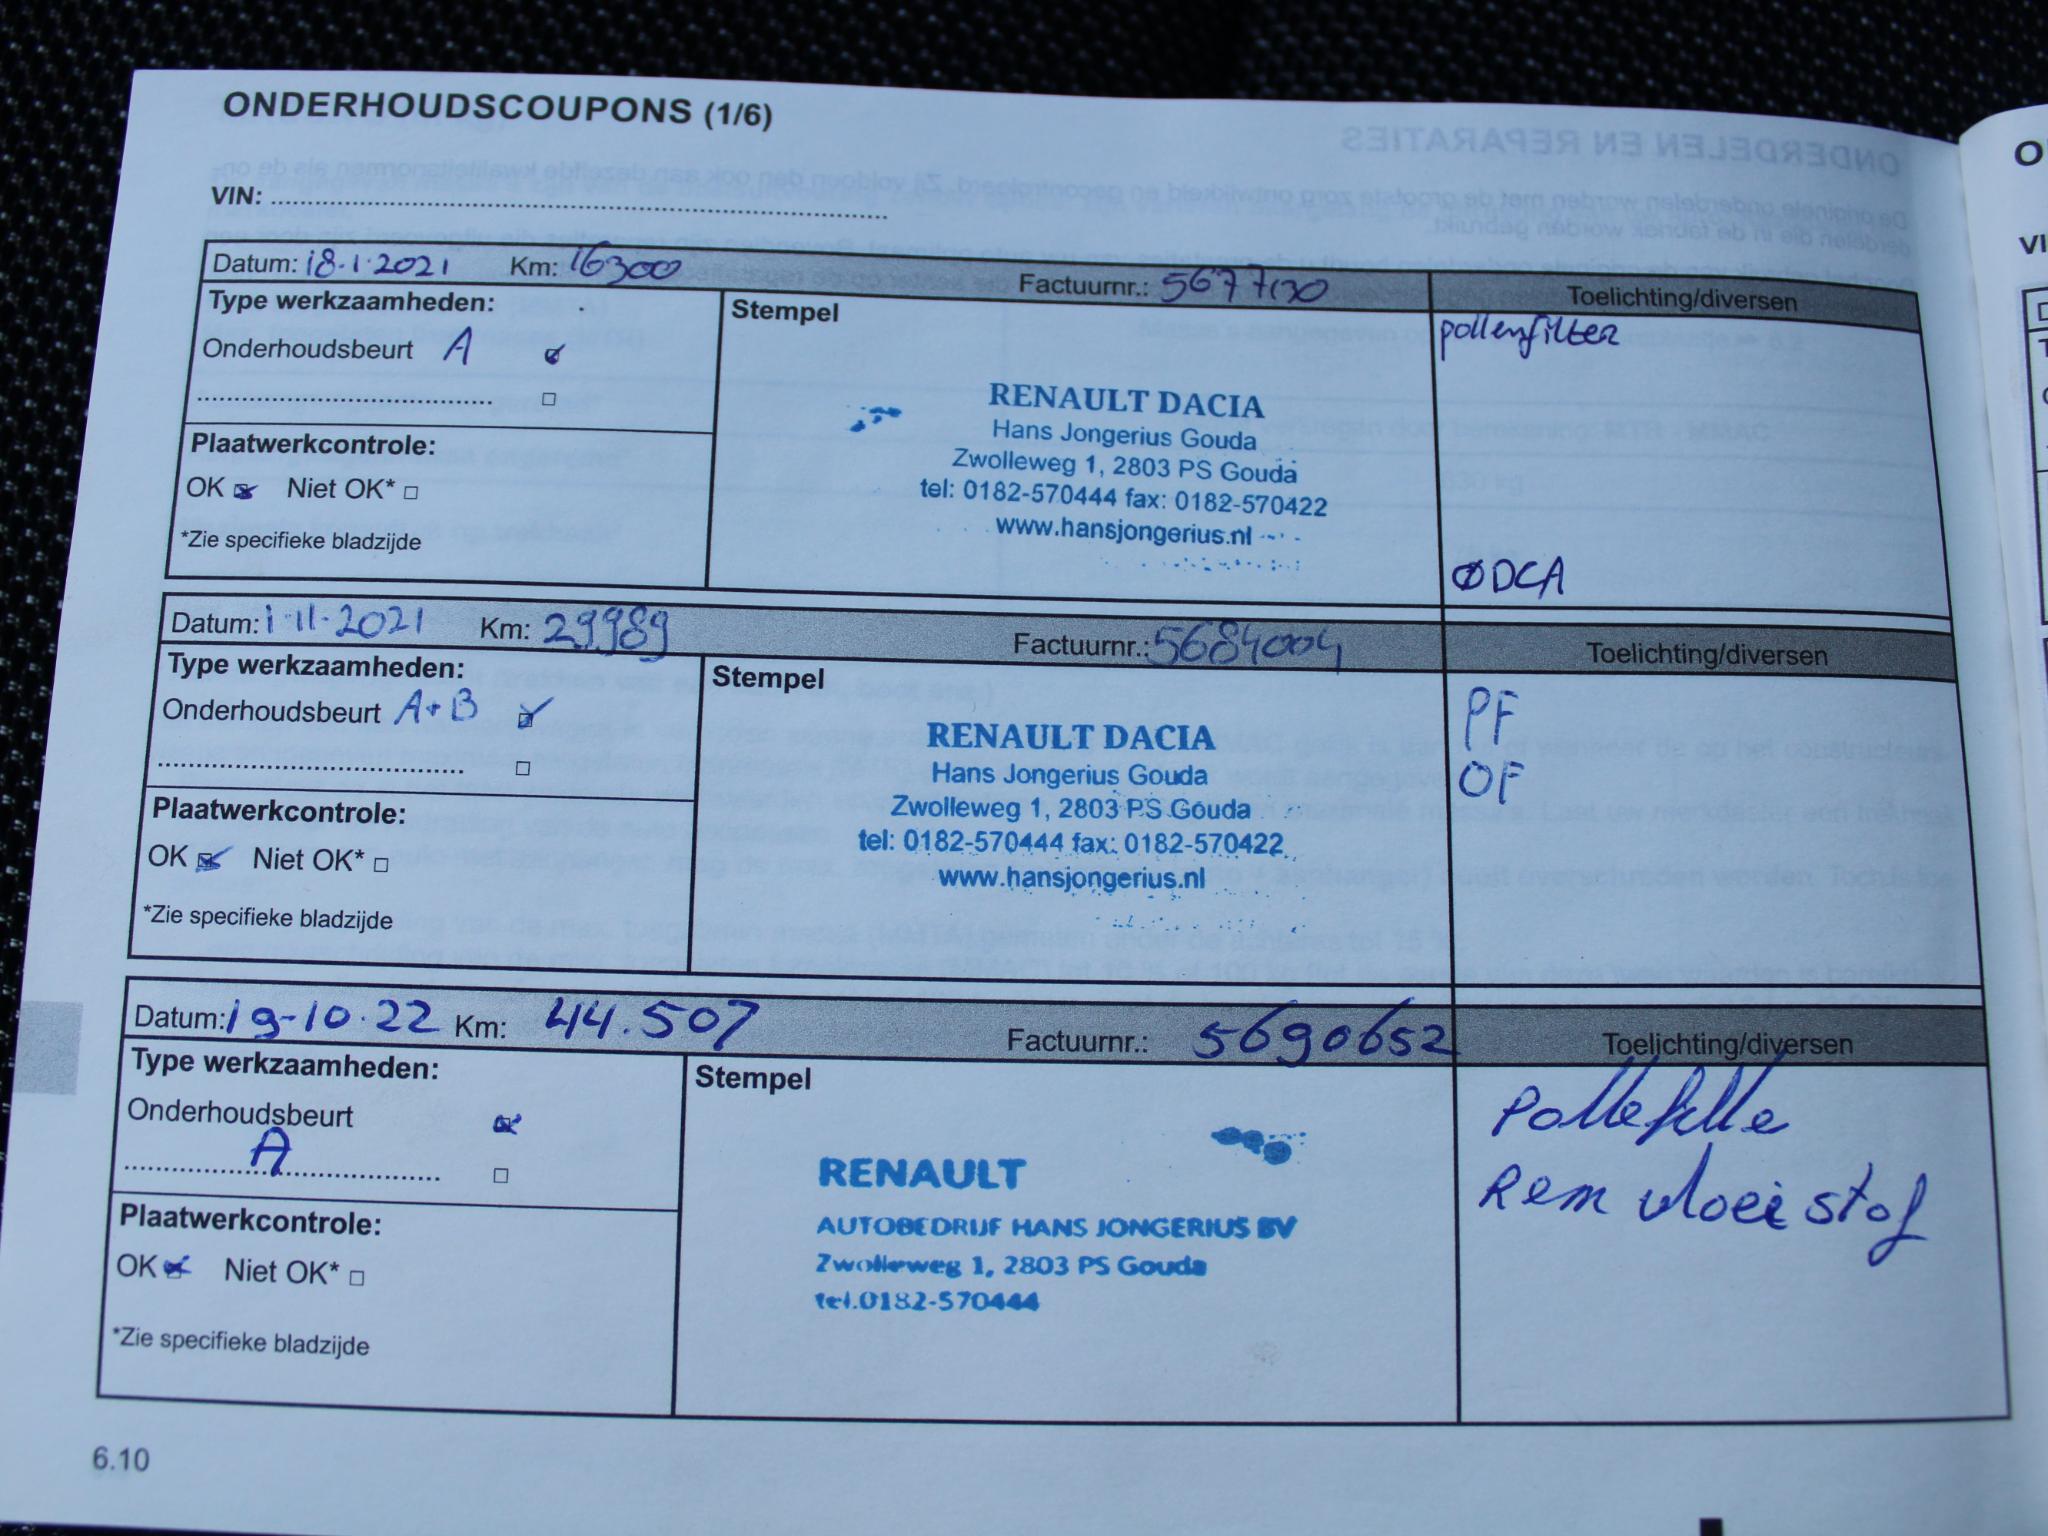 ONDERHOUDSCOUPONS (1/6)
VIN:
Datum: 18.1.2021 Km: 16300 Factuurnr.: 5677130 Toelichting/diversen
Type werkzaamheden: Stempel pollenfilter
Onderhoudsbeurt A
RENAULT DACIA
Hans Jongerius Gouda
Plaatwerkcontrole: Zwolleweg 1, 2803 PS Gouda
OK Niet OK* tel: 0182-570444 fax: 0182-570422
www.hansjongerius.nl
*Zie specifieke bladzijde
DCA
Datum: 1.11.2021 Km: 29989 Factuurnr.: 5684004 Toelichting/diversen
Type werkzaamheden: Stempel PF
Onderhoudsbeurt A+B
RENAULT DACIA
Hans Jongerius Gouda OF
Plaatwerkcontrole: Zwolleweg 1, 2803 PS Gouda
OK Niet OK* tel: 0182-570444 fax: 0182-570422
www.hansjongerius.nl
*Zie specifieke bladzijde
Datum: 19-10.22 Km: 44.507 Factuurnr.: 5690652 Toelichting/diversen
Type werkzaamheden: Stempel
Onderhoudsbeurt
A
RENAULT
Rem vloeistof
Plaatwerkcontrole: AUTOBEDRIJF HANS JONGERIUS BV
OK Niet OK* Zwolleweg 1, 2803 PS Gouda
tel.0182-570444
*Zie specifieke bladzijde
6.10